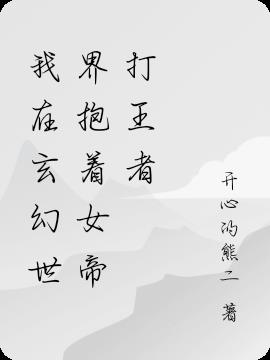 我在玄幻世
界抱着女帝
打王者
开心的熊二 著